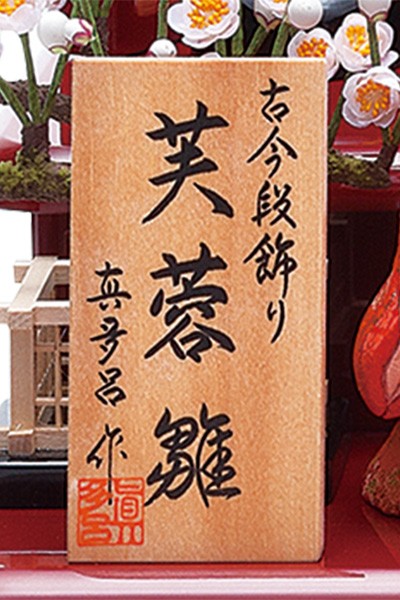 古今段飾り
芙蓉雛
真多呂作
真多呂